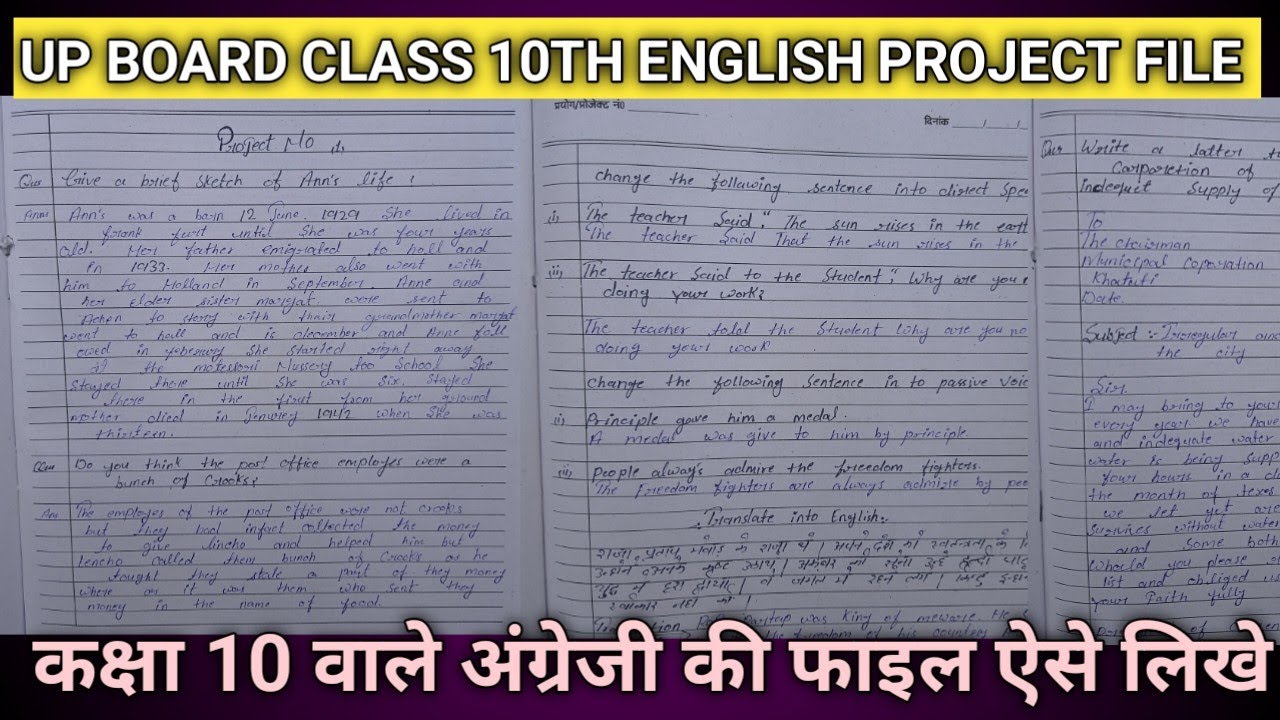 UP BOARD CLASS 10TH ENGLISH PROJECT FILE
Project No 1
Ques Give a brief sketch of Ann's life :
Ans Ann's was a born 12 June. 1929 She lived in
frank furt until She was four years
old. Her father emigrated to holl and
in 1933. Her mother also went with
him to Holland in September. Anne and
her elder sister margat were sent to
Achen to story with thair grandmother margat
went to holl and in december and Anne foll
owed in February She started right away
at the motessori Nussery too School She
Stayed there until She was Six. Stayed
there in the first from her ground
mother died in 1942 when She was
thirteen.
Ques Do you think the post office employes were a
bunch of Crooks?
Ans The employes of the post office were not crooks
but they had infact collected the money
to give lencho and helped him but
lencho called them bunch of Crooks as he
tought they stole a part of they money
where as it was them who sent they
money in the name of
प्रयोग/प्रोजेक्ट नं0
दिनांक / /
change the following sentence into direct Spee
i) The teacher Said", The sun rises in the eart
The teacher Said That the sun rises in the
ii) The teacher Said to the Student", Why are you
doing your work?
The teacher told the Student Why are you no
doing your work
change the following Sentence in to passive Voic
i) Principle gave him a medal.
A medal was give to him by principle.
ii) People always admire the freedom fighters.
The Freedom fighters are always admire by peo
Translate into English:
was King of meware. He
the freedom of his country
Ques Write a latter to
Corporetion of
indequit Supply of
To
The chairman
Municipal Coporation
Khatuli
Date.
Subject :- Irregular and
the city
Sir
I may bring to your
every year we have
and indequate water
water is being supp
four hours in a d
the month of
we let yet are
Survives without wate
and Some both
Whould you please
list and obliged
your Faith fully
कक्षा 10 वाले अंग्रेजी की फाइल ऐसे लिखे